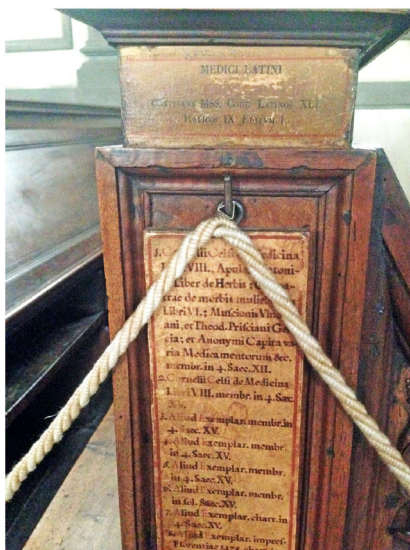 MEDICI LATINI
CONTINENS MSS. CODD. LATINOS XLI
ITALICOS IX EDITUM I.
1. Celsi Medicina
VIII., Apul
Liber de Herbis
de morbis mulie
Libri VI; Muscionis Vin
ani, et Theod. Prisciani
cia; et Anonymi Capita va
ria Medicamentorum &c.
membr. in 4. Saec. XII.
2. Cornelii Celsi de Medicina
Libri VIII. membr. in 4. Saec
3. Aliud Exemplar. membr. in
4. Saec. XV.
4. Aliud Exemplar. membr.
in 4. Saec. XV.
5. Aliud Exemplar. membr.
in 4. Saec. XV.
6. Aliud Exemplar. membr.
in fol. Saec. XV.
7. Aliud Exemplar. chart. in
4. Saec. XV.
8. Aliud Exemplar. impres
Florentiae